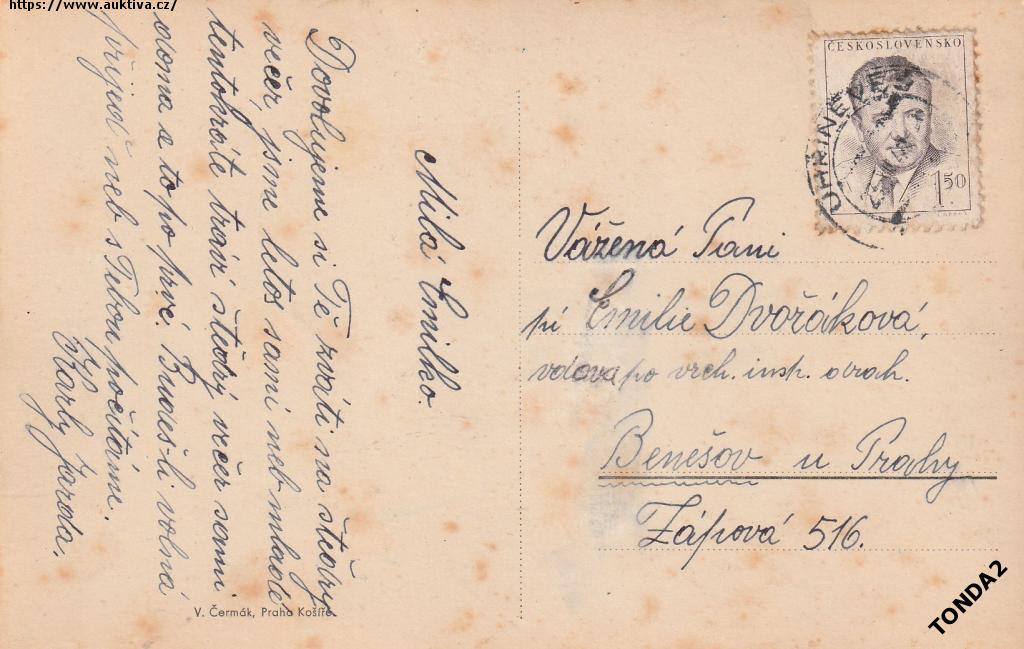 https://www.auktiva.cz/
Milá Emilko.
Dovolujeme si Tě zváti na štědrý
večer, jsme letos sami neb mladé
tentokráte tráví štědrý večer sami
doma a to po prvé. Budeš-li volná
přijeď neb s Tebou počítáme.
Jarda.
V. Čermák, Praha Košíře.
ČESKOSLOVENSKO
1.50
UHŘÍNĚVES
Vážená Paní
pí Emilie Dvořáková,
vdova po vrch. insp. drah.
Benešov u Prahy
Zápová 516.
TONDA2